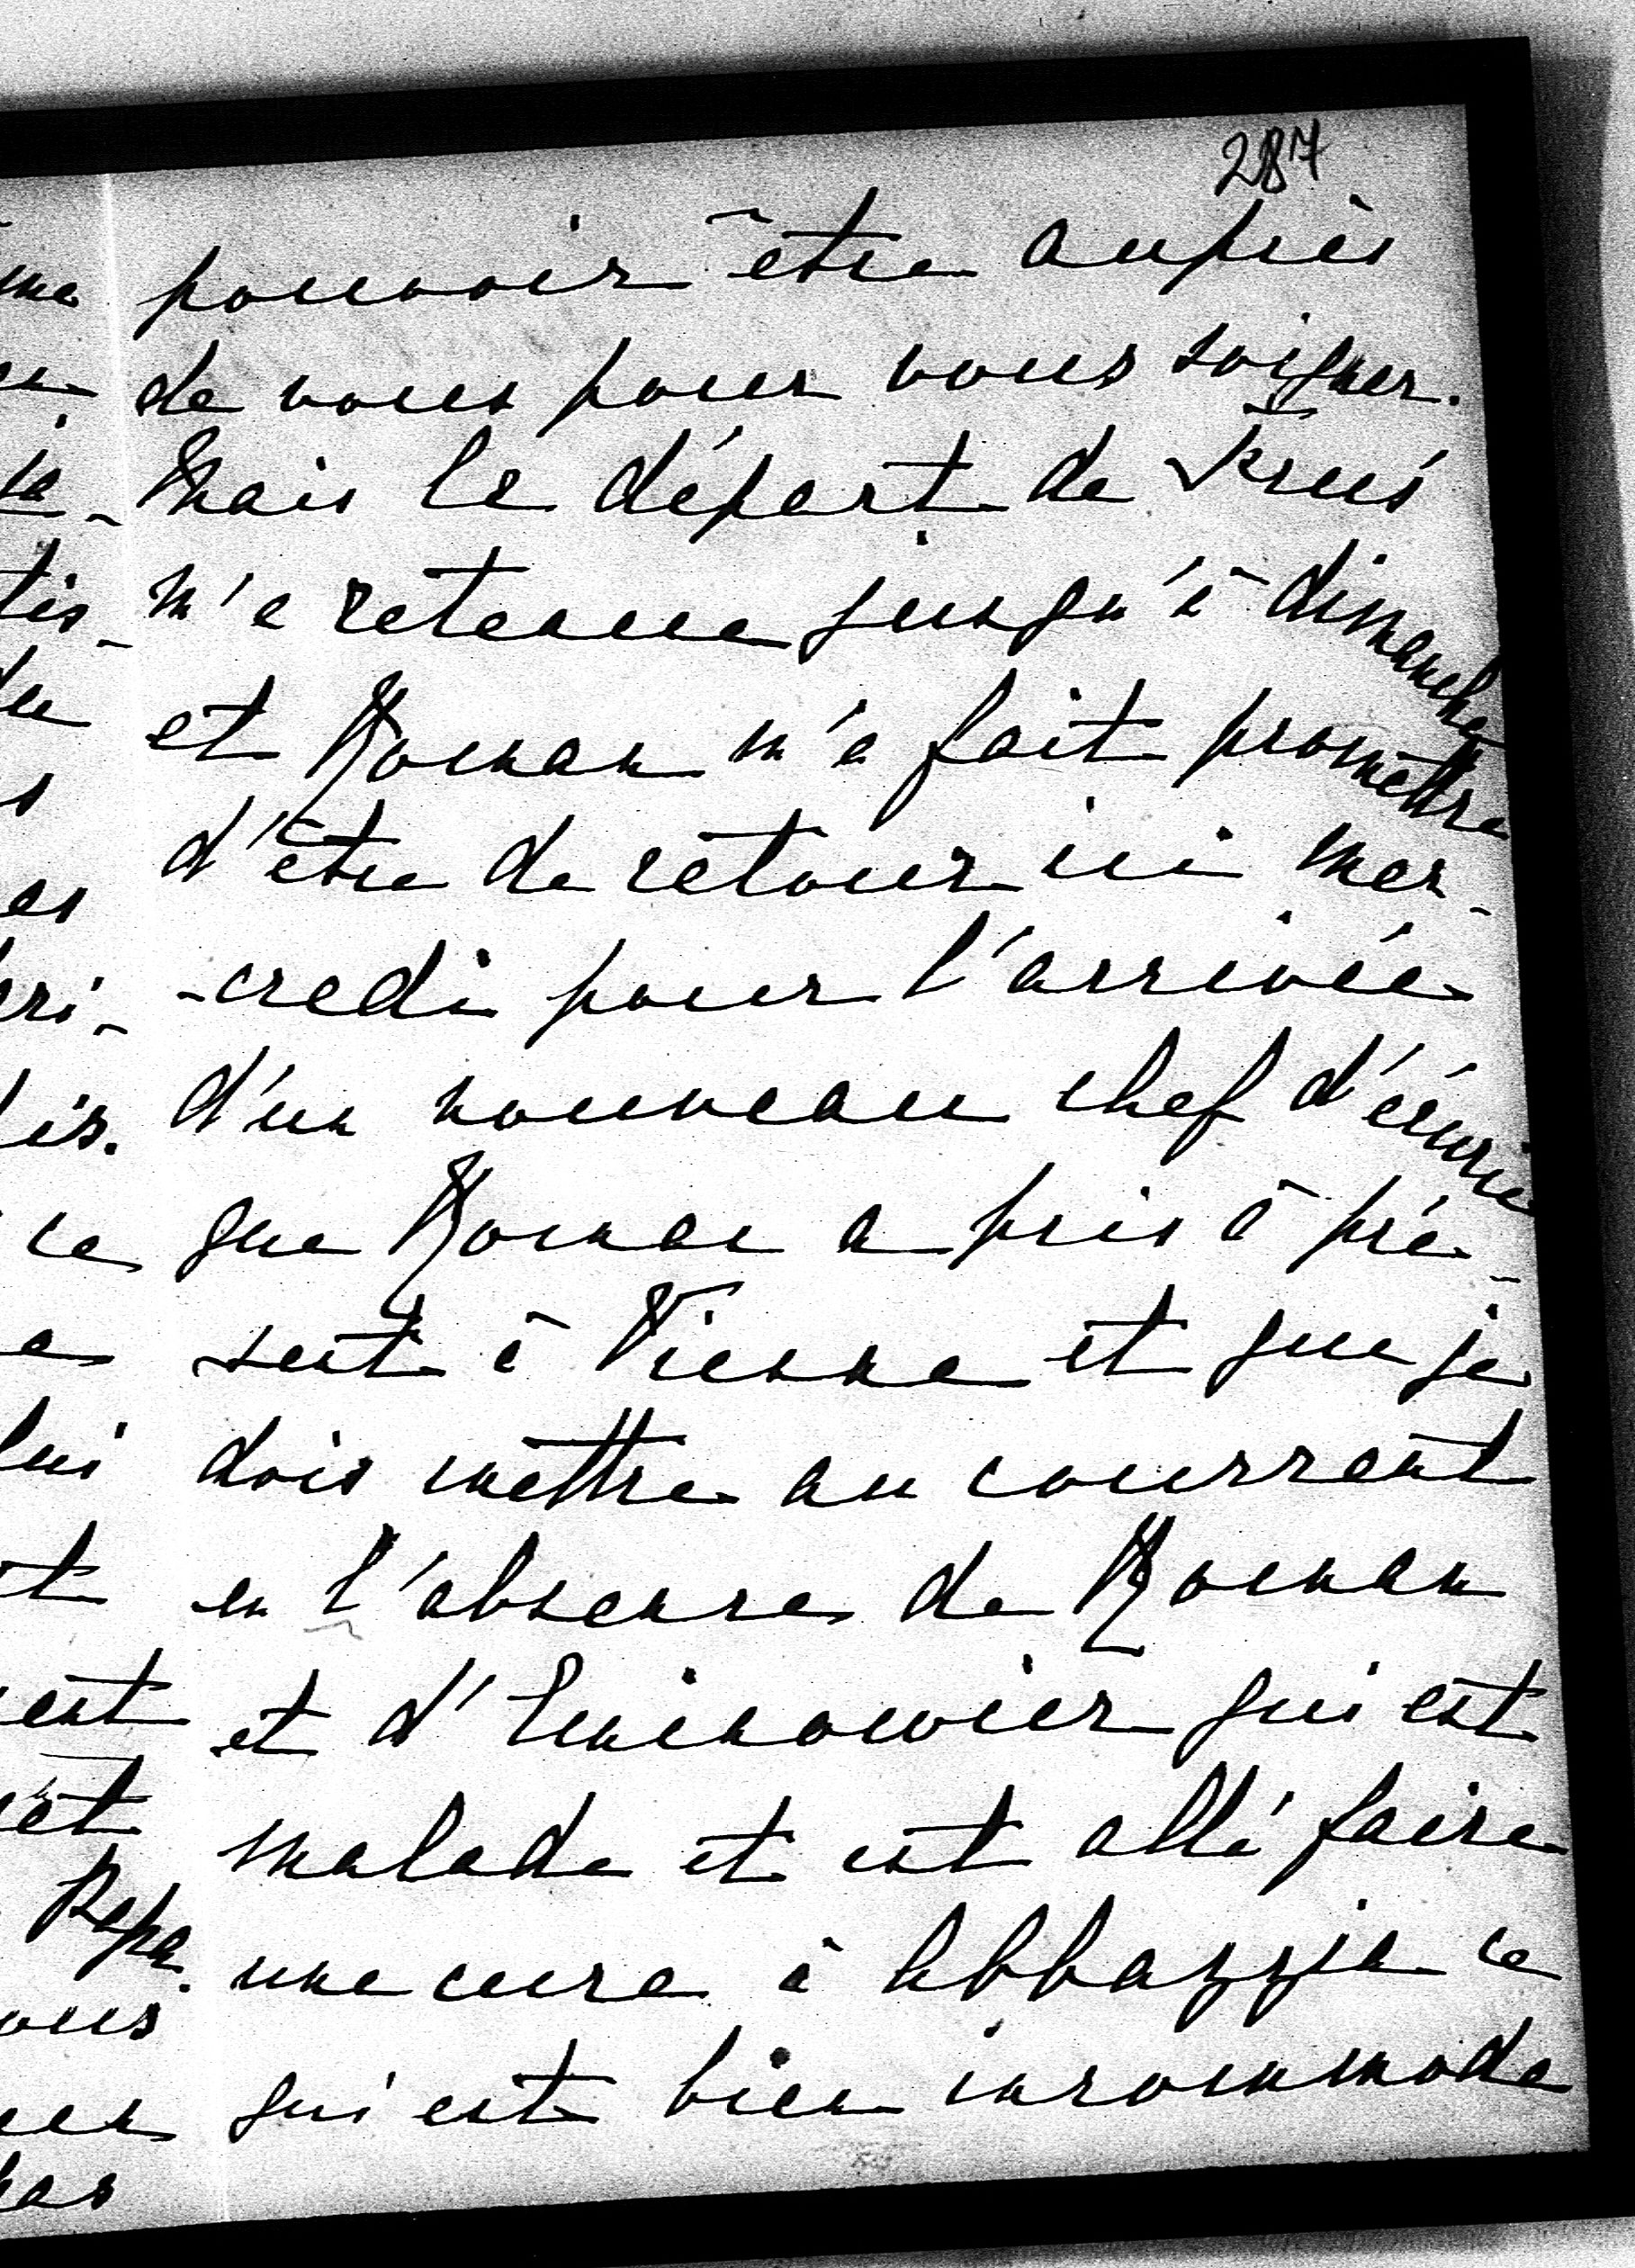 287
pouvoir être auprès
de vous pour vous soigner.
Mais le départ de
m'a retenue jusqu'à dimanche
et Roman m'a fait promettre
d'être de retour ici mer-
-credi pour l'arrivée
d'un nouveau chef d'écurie
que Roman a pris à pré-
sent à Vienne et que je
dois mettre au courrant
en l'absence de Roman
et d' qui est
malade et est allé faire
une cure à Abbazzia ce
qui est bien incommode
Papa.